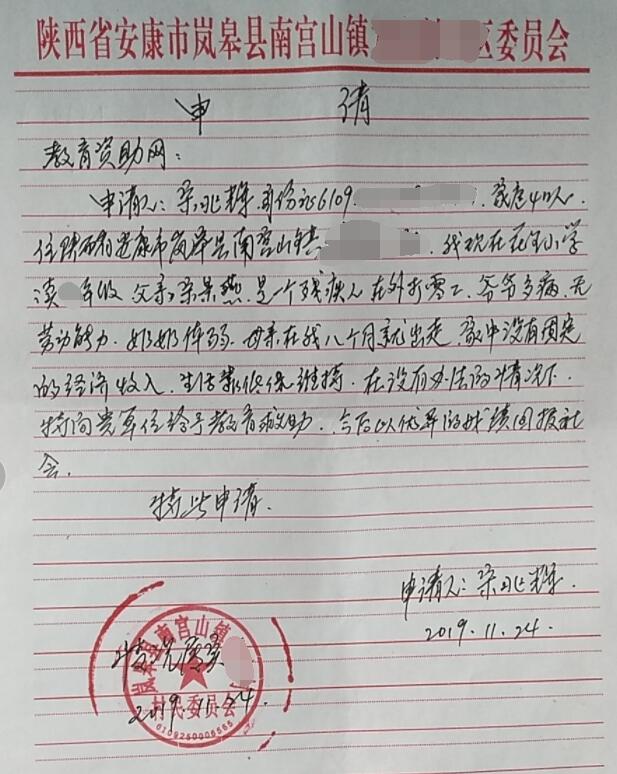 陕西省安康市岚皋县南宫山镇 区委员会
申 请
教育资助网：
申请人：宋兆辉 身份证6109 家庭4口人.
住陕西省安康市岚皋县南宫山镇 . 我现在在 小学
读 年级 父亲: 宋景燕.是一个残疾人 在外打零工.爷爷多病.无
劳动能力.奶奶体弱.母亲在我八个月就出走.家中没有固定
的经济收入.生活靠低保维持.在没有办法的情况下.
特向贵单位给予教育救助.今后以优异的成绩回报社
会.
特此申请.
申请人: 宋兆辉.
2019.11.24.
岚皋县南宫山镇
情况属实
2019.11.24.
村民委员会